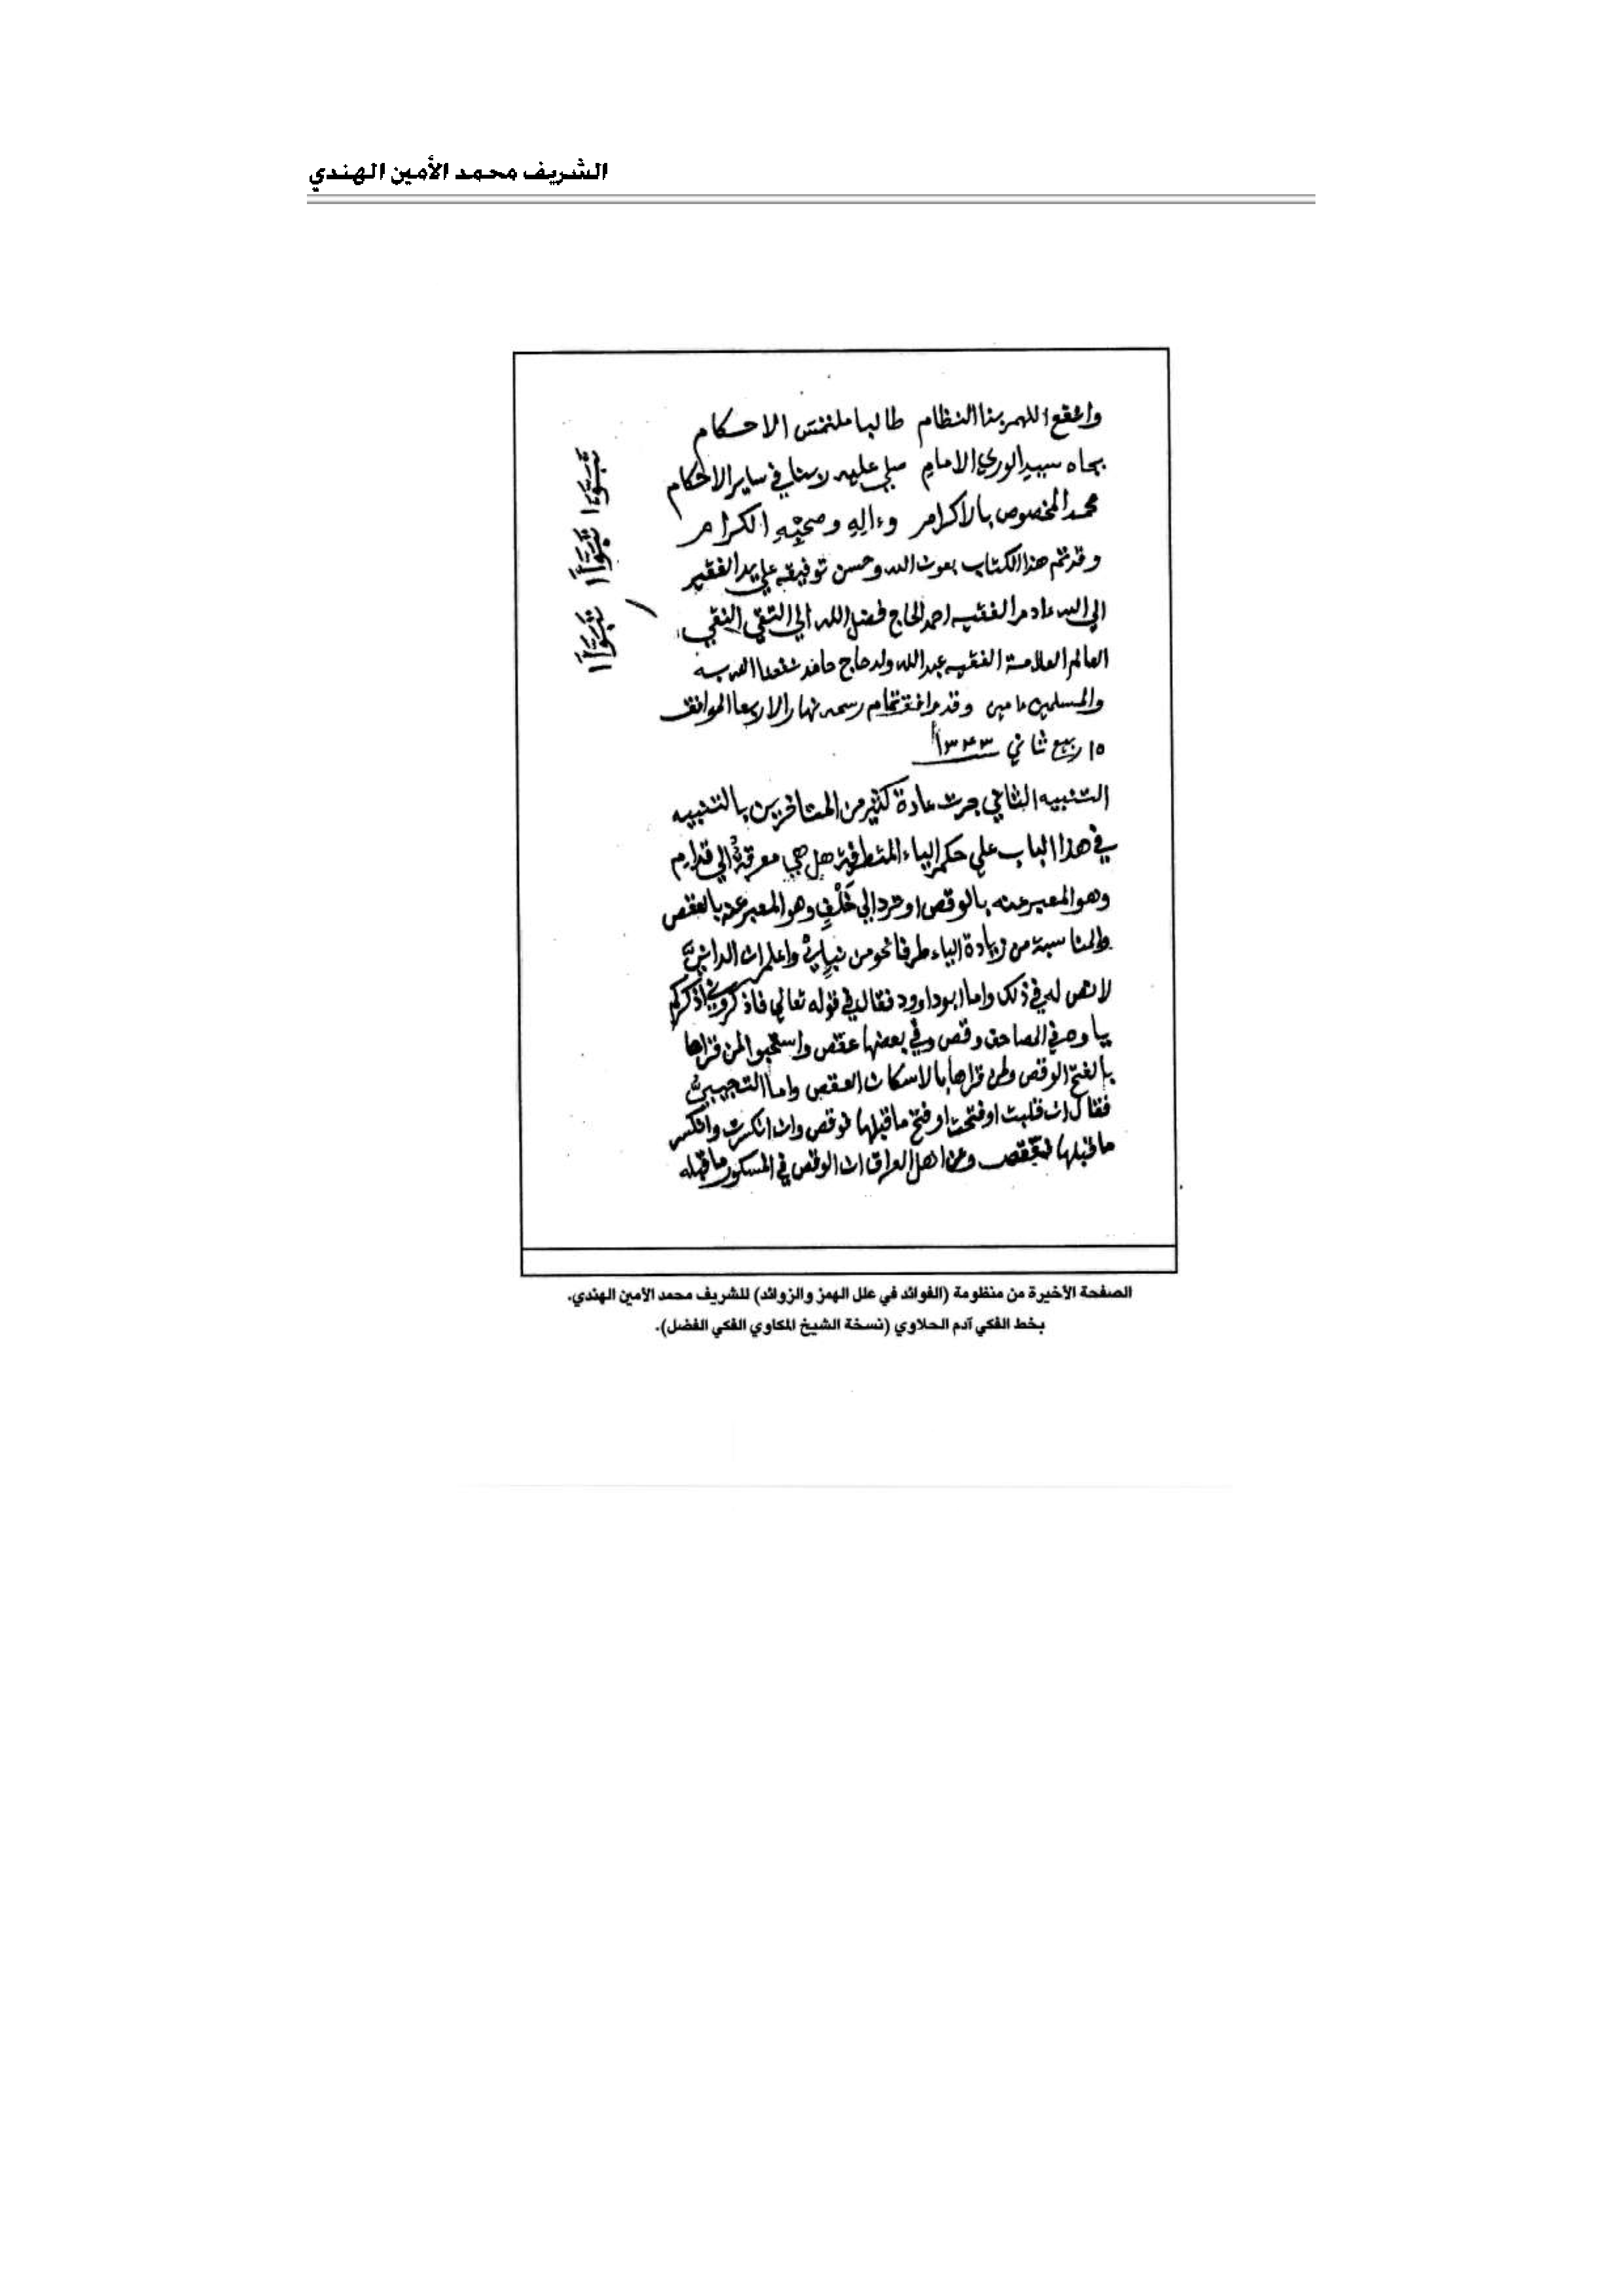 الشريف محمد الأمين الهندي
وانفع اللهم بذا النظام طالبا ملتمس الاحكام
بجاه سيد الوري الامام صلي عليه ربنا في ساير الاحكام
محمد المخصوص بالاكرام وءاله وصحبه الكرام
وقد تم هذا الكتاب بعون الله وحسن توفيقه علي يد الفقير
الي الله ءادم الفقيه احمد الحاج فضل الله الي التقي النقي
العالم العلامة الفقيه عبد الله ولد حاج حامد نفعنا الله به
والمسلمين ءامين وقد تمام رسمه نهار الاربعا الموافق
١٥ ربيع ثاني ١٣٤٣
التنبيه الثاني جرت عادة كثير من المتاخرين بالتنبيه
في هذا الباب علي حكم الياء المتطرفة هل هي معرقة الي قدام
وهو المعبر عنه بالوقص او ترد الي خلف وهو المعبر عنه بالعقص
والمناسبة من زيادة الياء طرفا نحو من نبإي واعلم ان الداني
لا نص له في ذلك واما ابو داوود فقال في قوله تعالي فاذكروني أذكركم
ياوه في المصاحف وقص وفي بعضها عقص واستحبوا لمن قراها
بالفتح الوقص ولمن قراها بالاسكان العقص واما التجيبي
فقال ان قلبت او فتحت او فتح ما قبلها فوقص وان انكسرت وانكسر
ما قبلها فعقص وعن اهل العراق ان الوقص في المسكون ما قبله
تبوءا تبوءا تبوءا
الصفحة الأخيرة من منظومة (الفوائد في علل الهمز والزوائد) للشريف محمد الأمين الهندي.
بخط الفكي آدم الحلاوي (نسخة الشيخ المكاوي الفكي الفضل).